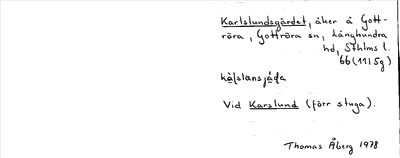 Karlslundsgärdet, åker å Gott-
röra, Gottröra sn, Långhundra
hd, Sthlms l.
66 (11I5g)
Vid Karslund (förr stuga).
Thomas Åberg 1978